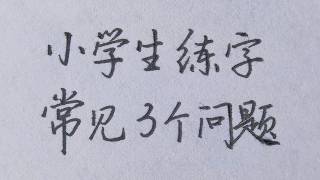 小学生练字
常见3个问题